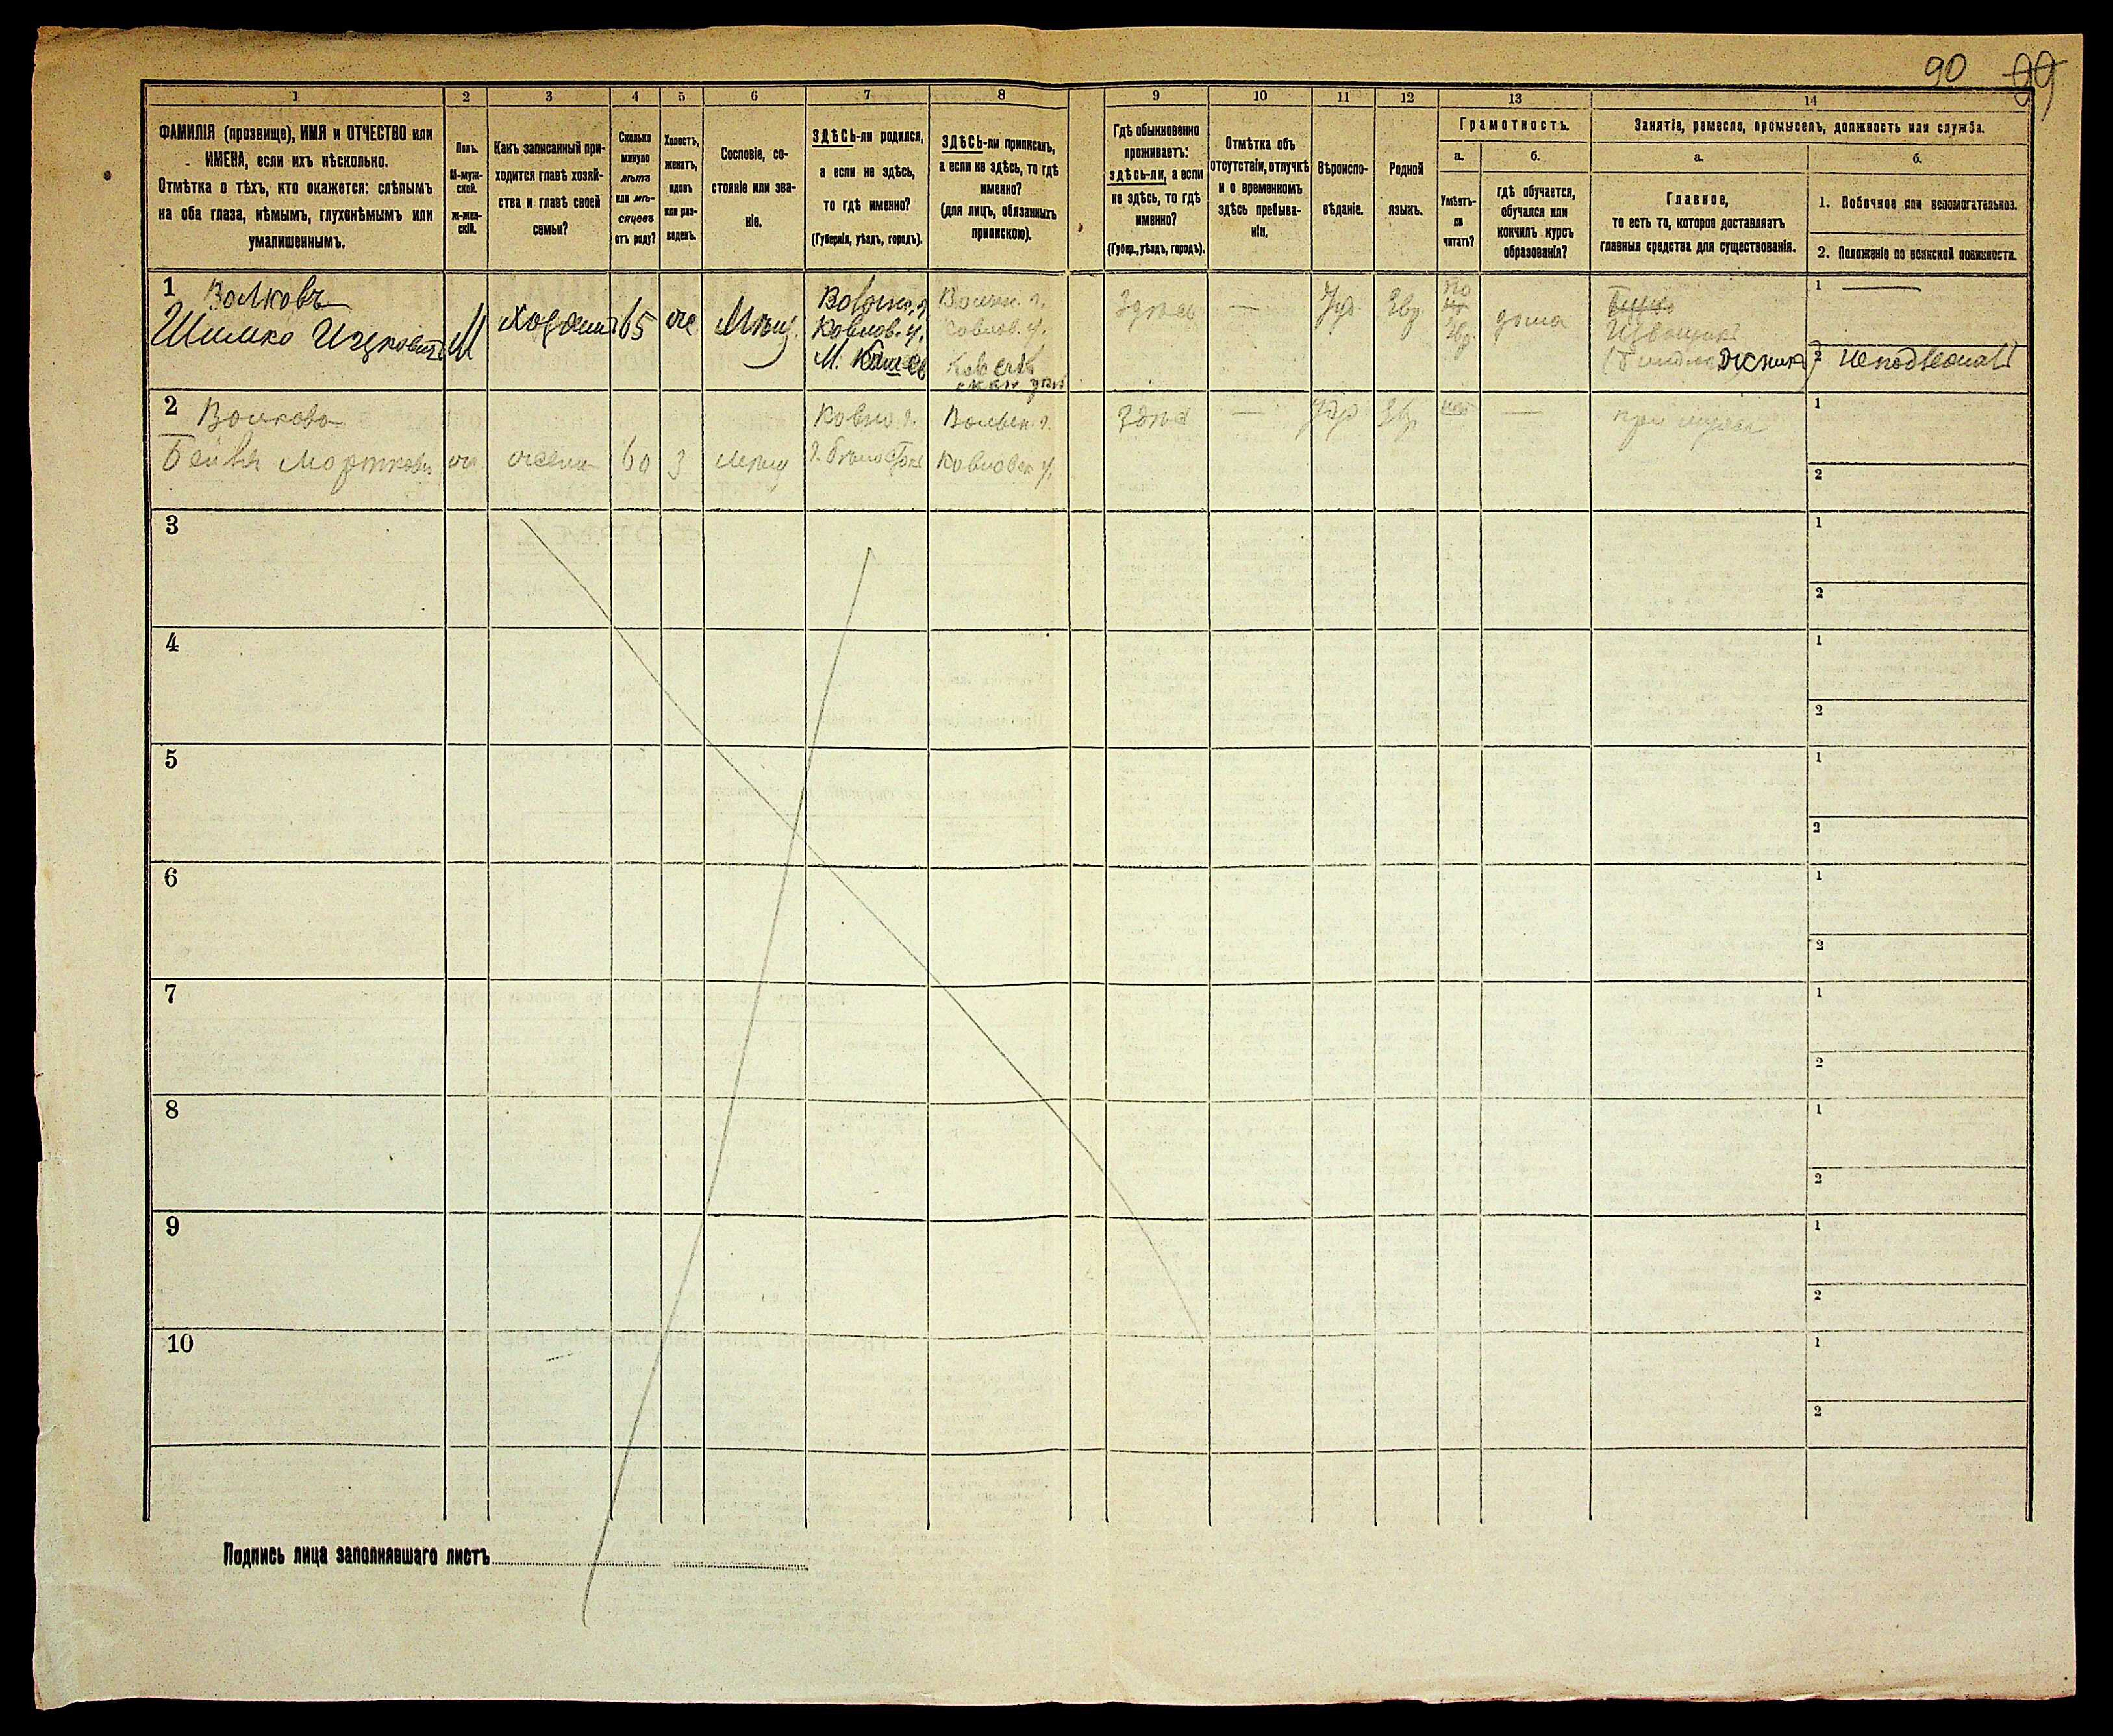 90 99
1
2
3
4
5
6
7
8
9
10
11
12
13
14
ФАМИЛІЯ (прозвище), ИМЯ и ОТЧЕСТВО или
ИМЕНА, если ихъ нѣсколько.
Отмѣтка о тѣхъ, кто окажется: слѣпымъ
на оба глаза, нѣмымъ, глухонѣмымъ или
умалишеннымъ.
Полъ.
М-муж-
ской.
ж-жен-
скій.
Какъ записанный при-
ходится главѣ хозяй-
ства и главѣ своей
семьи?
Сколько
минуло
лѣтъ
или мѣ-
сяцевъ
отъ роду?
Холостъ,
женатъ,
вдовъ
или раз-
веденъ.
Сословіе, со-
стояніе или зва-
ніе.
ЗДѢСЬ-ли родился,
а если не здѣсь,
то гдѣ именно?
(Губернія, уѣздъ, городъ).
ЗДѢСЬ-ли приписанъ,
а если не здѣсь, то гдѣ
именно?
(для лицъ, обязанныхъ
припискою).
Гдѣ обыкновенно
проживаетъ:
здѣсь-ли, а если
не здѣсь, то гдѣ
именно?
(Губер., уѣздъ, городъ).
Отмѣтка объ
отсутствіи, отлучкѣ
и о временномъ
здѣсь пребыва-
ніи.
Вѣроиспо-
вѣданіе.
Родной
языкъ.
Грамотность.
а.
Умѣетъ-
ли
читать?
б.
гдѣ обучается,
обучался или
кончилъ курсъ
образованія?
Занятіе, ремесло, промыселъ, должность или служба.
а.
Главное,
то есть то, которое доставляетъ
главныя средства для существованія.
б.
1. Побочное или вспомогательное.
2. Положеніе по воинской повинности.
1
Волковъ
Шимко Ицковичъ
М
хозяинъ
65
же
Мѣщ.
Волын. г.
Ковлов. у.
М.
Волын. г.
Ковлов. у.
Здѣсь
—
Іуд
Евр.
по
Евр.
дома
Извощикъ
1 —
2 неподлежитъ
2
Волкова
Бейля
же
жена
60
З
мѣщ
г. Бѣлосток
Волын. г.
Ковловск у.
Здѣсь
—
Іуд
Евр
нѣт
—
при мужѣ
1
2
3
1
2
4
1
2
5
1
2
6
1
2
7
1
2
8
1
2
9
1
2
10
1
2
Подпись лица заполнявшаго листъ